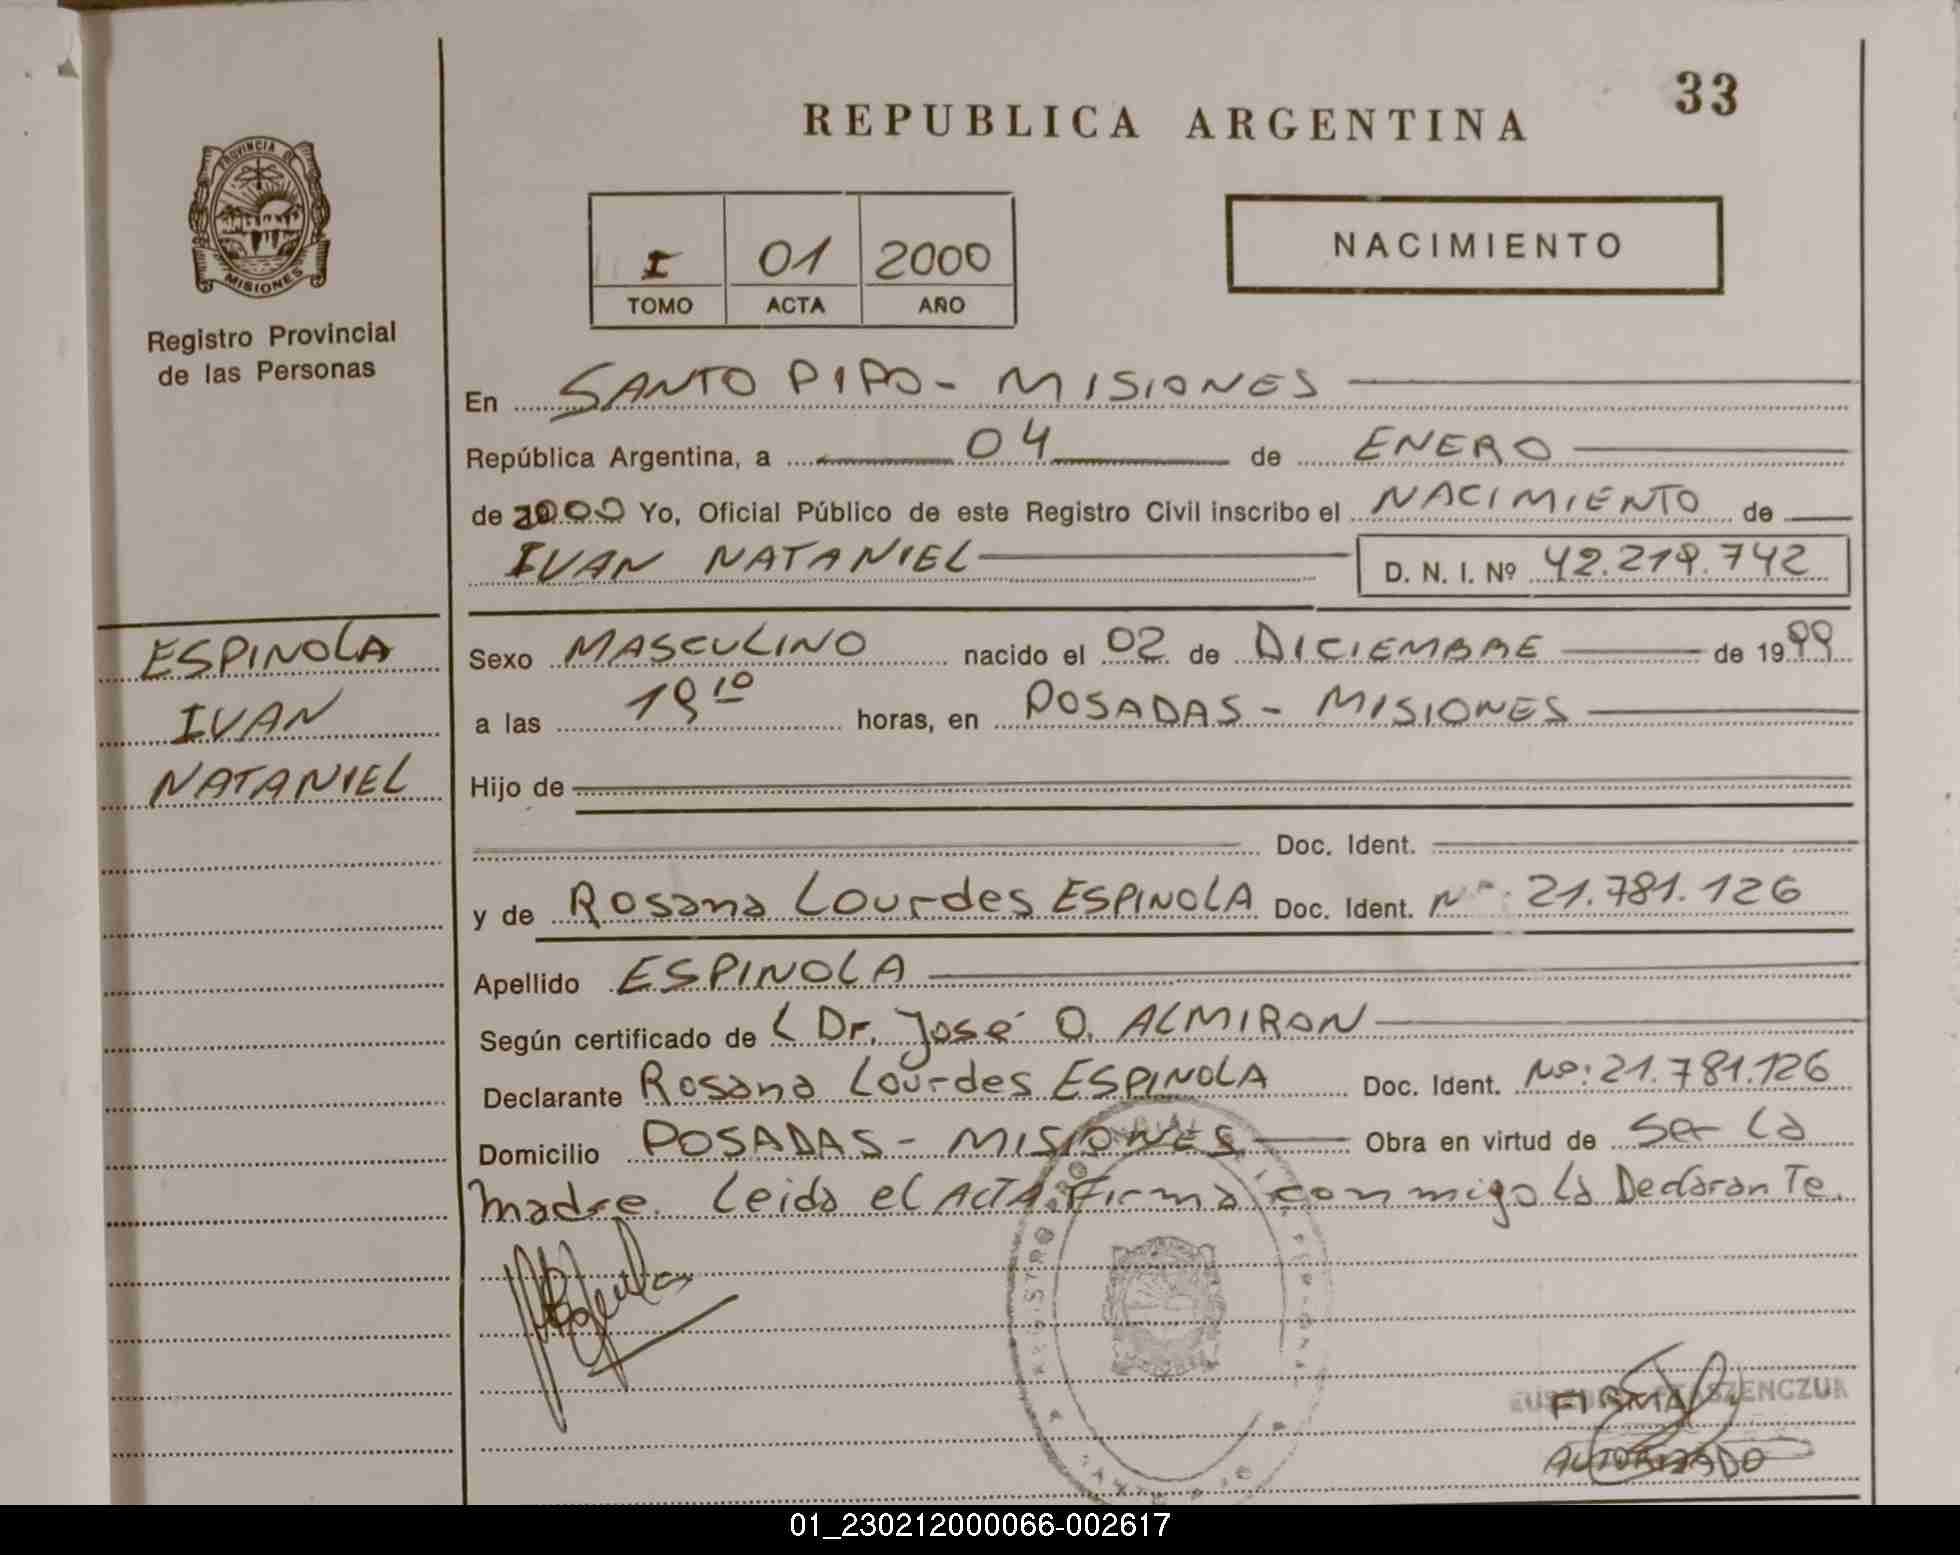 33
REPUBLICA ARGENTINA
PROVINCIA DE
MISIONES
Registro Provincial
de las Personas
I 01 2000
TOMO ACTA AÑO
NACIMIENTO
En SANTO PIPO - MISIONES
República Argentina, a 04 de ENERO
de 2000 Yo, Oficial Público de este Registro Civil inscribo el NACIMIENTO de
IVAN NATANIEL D. N. I. Nº 42.219.742
ESPINOLA
IVAN
NATANIEL
Sexo MASCULINO nacido el 02 de DICIEMBRE de 1999
a las 19 10 horas, en POSADAS - MISIONES
Hijo de
Doc. Ident.
y de Rosana Lourdes ESPINOLA Doc. Ident. Nº: 21.781.126
Apellido ESPINOLA
Según certificado de L Dr. José O. ALMIRON
Declarante Rosana Lourdes ESPINOLA Doc. Ident. Nº: 21.781.126
Domicilio POSADAS - MISIONES Obra en virtud de Ser La
madre. Leida el ACTA firma conmigo La Declarante.
FIRMA
AUTORIZADO
01_230212000066-002617